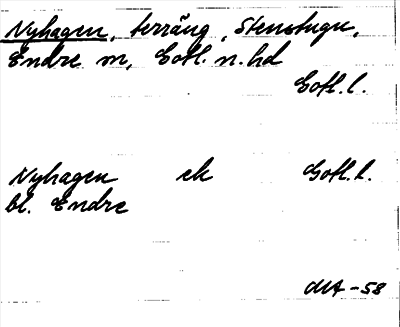 Nyhagen, terräng, Stenstugu,
Endre sn, Gotl. n. hd
Gotl. l.
Nyhagen ek Gotl. l.
bl. Endre
MA -58